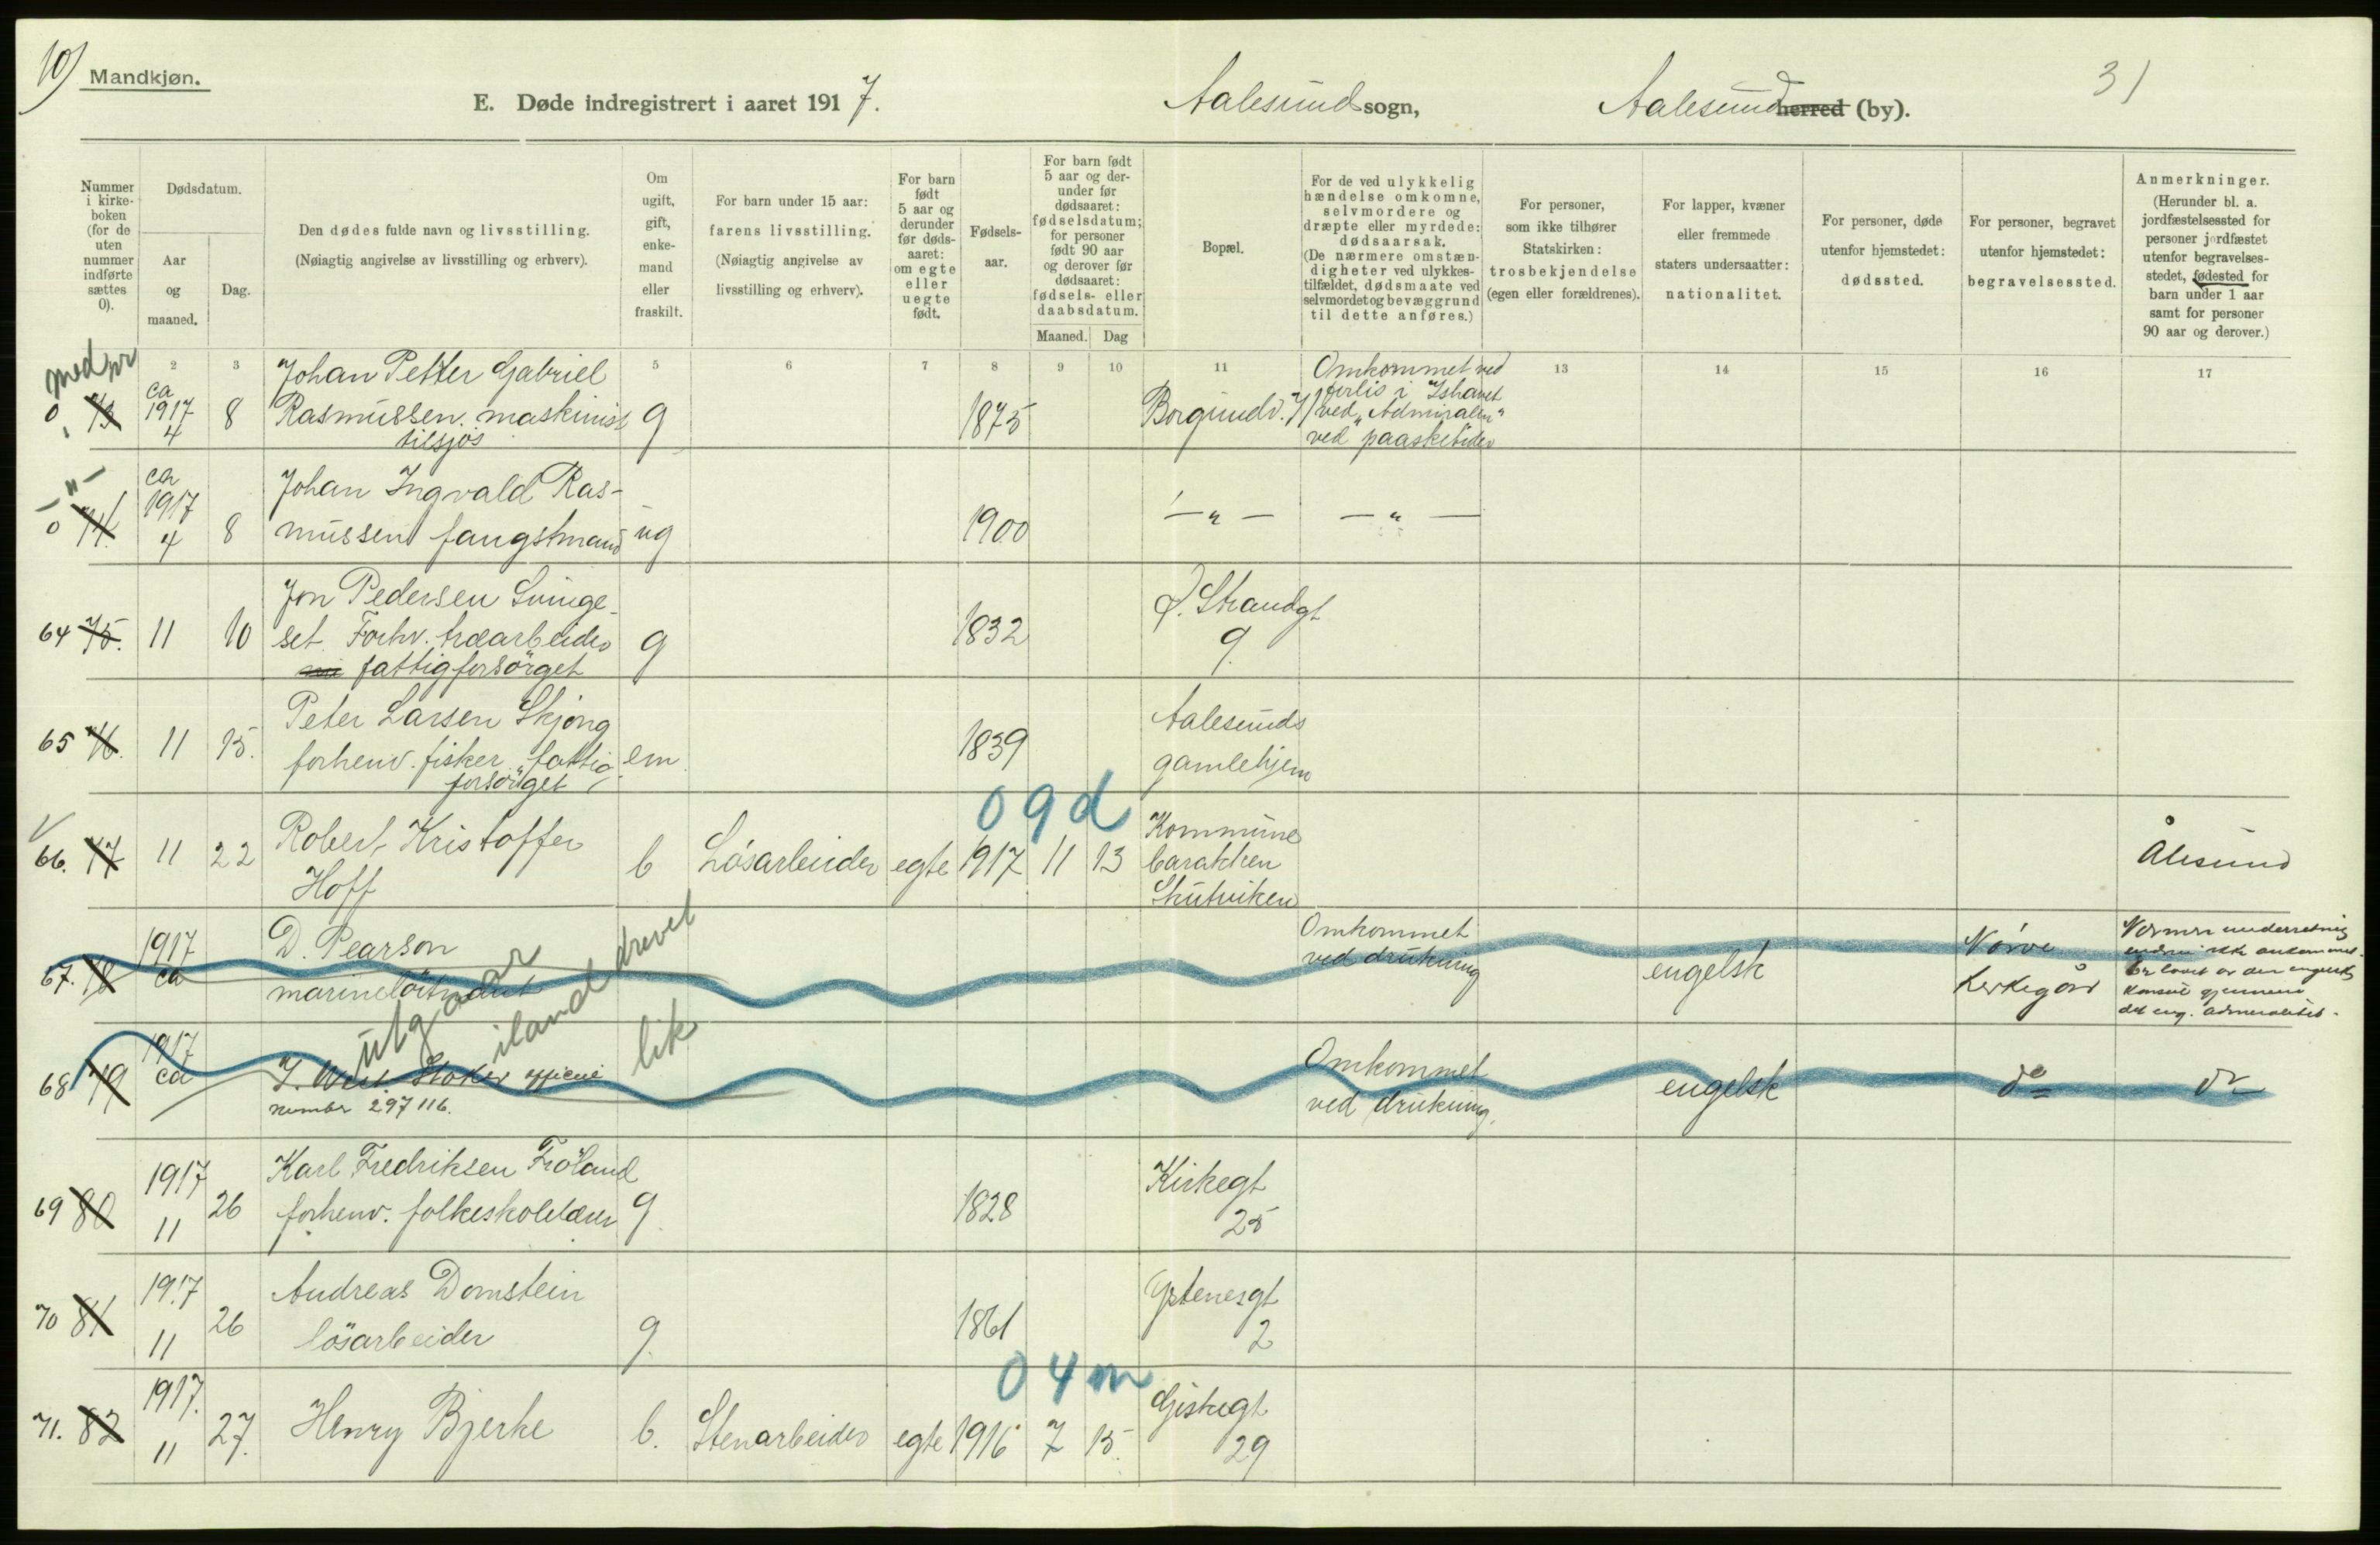 10)
Mandkjøn.
E. Døde indregistrert i aaret 1917.
Aalesund sogn,
Aalesund herred (by).
31
Nummer i kirke-boken (for de uten nummer indførte sættes 0).
Dødsdatum.
Aar og maaned.
Dag.
Den dødes fulde navn og livsstilling.
(Nøiagtig angivelse av livsstilling og erhverv).
Om ugift, gift, enke-mand eller fraskilt.
For barn under 15 aar:
farens livsstilling.
(Nøiagtig angivelse av livsstilling og erhverv).
For barn født 5 aar og derunder før døds-aaret: om egte eller uegte født.
Fødsels-aar.
For barn født 5 aar og der-under før dødsaaret: fødselsdatum; for personer født 90 aar og derover før dødsaaret: fødsels- eller daabsdatum.
Maaned. Dag
Bopæl.
For de ved ulykkelig hændelse omkomne, selvmordere og dræpte eller myrdede: dødsaarsak.
(De nærmere omstæn-digheter ved ulykkes-tilfældet, dødsmaate ved selvmordet og bevæggrund til dette anføres.)
For personer, som ikke tilhører Statskirken: trosbekjendelse (egen eller forældrenes).
For lapper, kvæner eller fremmede staters undersaatter: nationalitet.
For personer, døde utenfor hjemstedet: dødssted.
For personer, begravet utenfor hjemstedet: begravelsessted.
Anmerkninger.
(Herunder bl. a. jordfæstelsessted for personer jordfæstet utenfor begravelses-stedet, fødested for barn under 1 aar samt for personer 90 aar og derover.)
2 3 5 6 7 8 9 10 11 13 14 15 16 17
0 73 ca 1917 4 8 Johan Petter Gabriel
Rasmussen. maskinist
tilsjös g 1875 Borgundv. 71
Omkommet ved
forlis i Ishavet
ved "Admiralen"
ved paasketider
-"-
0 74. ca 1917 4 8 Johan Ingvald Ras-
mussen fangstmand ug 1900 -"- -"-
64 75. 11 10 Jon Pedersen Svinge-
set. Forhv. træarbeider
fattigforsörget g 1832 Strandgt
9.
65 76. 11 15. Peter Larsen Skjong
forhenv. fisker, fattig-
forsörget em. 1839 Aalesunds
gamlehjem
09d
66. 77 11 22 Robert Kristoffer
Hoff b Løsarbeider egte 1917 11 13 Kommune
barakken
Skutviken
Ålesund
67. 78 1917 ca D. Pearson
marinelöitnant
Omkommet
ved drukning
engelsk
Nörve
kirkegård
Nærmere underretning
endnu ikke ankommet.
Er lovet av den engelske
konsul gjennem
det eng. admiralitet.
utgaar
iland drevet
lik
68 79 1917 ca J. West. Stoker
number 297116.
Omkommet
ved drukning.
engelsk do do
69 80 1917 11 26 Karl Fredriksen Fröland
forhenv. folkeskolelærer g. 1828 Kirkegt
25
70 81 1917 11 26 Andreas Domstein
lösarbeider g. 1861 Ystenesgt
2
04m
71. 82 1917. 11 27. Henry Bjerke b. Stenarbeider egte 1916 7 15. Giskegt
29